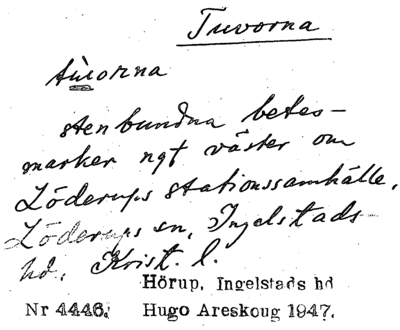 Tuvorna
tuvorna
stenbundna betes-
marker ngt väster om
Löderups stationssamhälle,
Löderups sn, Ingelstads
hd, Krist. l.
Hörup, Ingelstads hd
Nr 4446. Hugo Areskoug 1947.